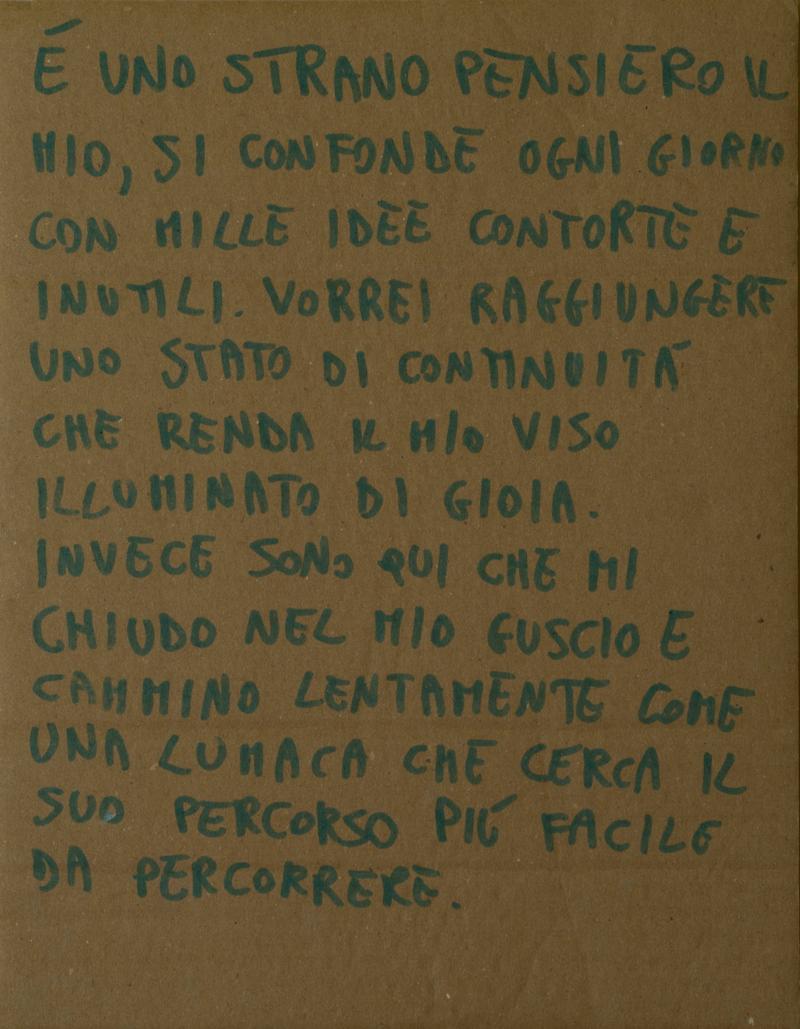 É UNO STRANO PENSIERO IL
MIO, SI CONFONDE OGNI GIORNO
CON MILLE IDEE CONTORTE E
INUTILI. VORREI RAGGIUNGERE
UNO STATO DI CONTINUITÁ
CHE RENDA IL MIO VISO
ILLUMINATO DI GIOIA.
INVECE SONO QUI CHE MI
CHIUDO NEL MIO GUSCIO E
CAMMINO LENTAMENTE COME
UNA LUMACA CHE CERCA IL
SUO PERCORSO PIÚ FACILE
DA PERCORRERE.